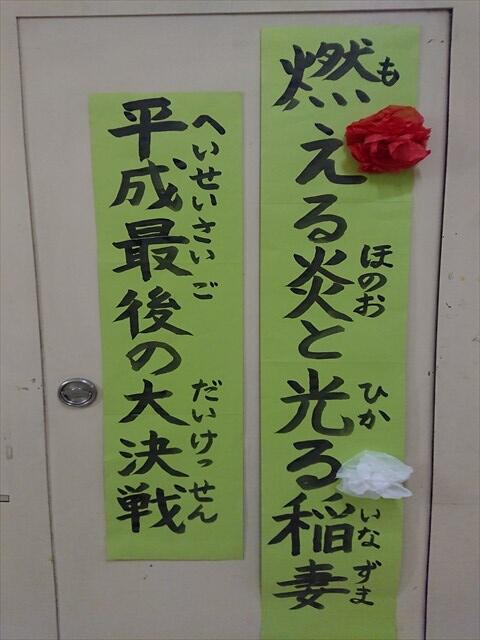 燃える炎と光る稲妻
も
ほのお
ひか
いなずま
平成最後の大決戦
へいせいさいご
だいけっせん